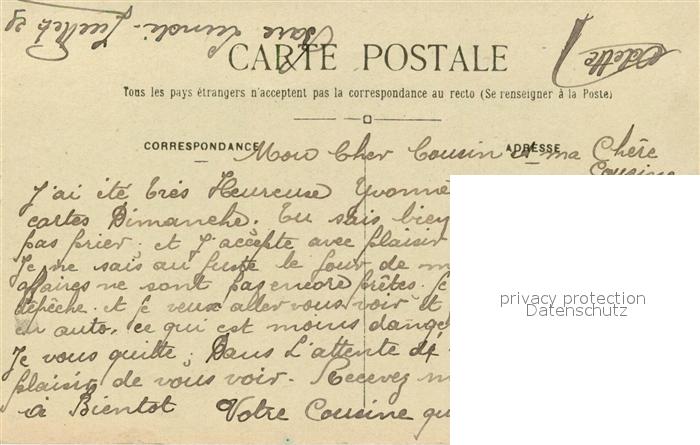 Bare Lundi - Juillet 29
Odette
CARTE POSTALE
Tous les pays étrangers n'acceptent pas la correspondance au recto (Se renseigner à la Poste)
CORRESPONDANCE
ADRESSE
Mon Cher Cousin et ma Chère
Cousine
J'ai été très Heureuse Yvonne
cartes Dimanche. Tu sais bien
pas prier. et J'accepte avec plaisir
Je ne sais au juste le jour de m
affaires ne sont pas encore prêtes. Je
dépêche. et je veux aller vous voir et
en auto. ce qui est moins dange
Je vous quitte, Dans L'attente de
plaisir de vous voir. Recevez m
à Bientot Votre Cousine qu
privacy protection
Datenschutz